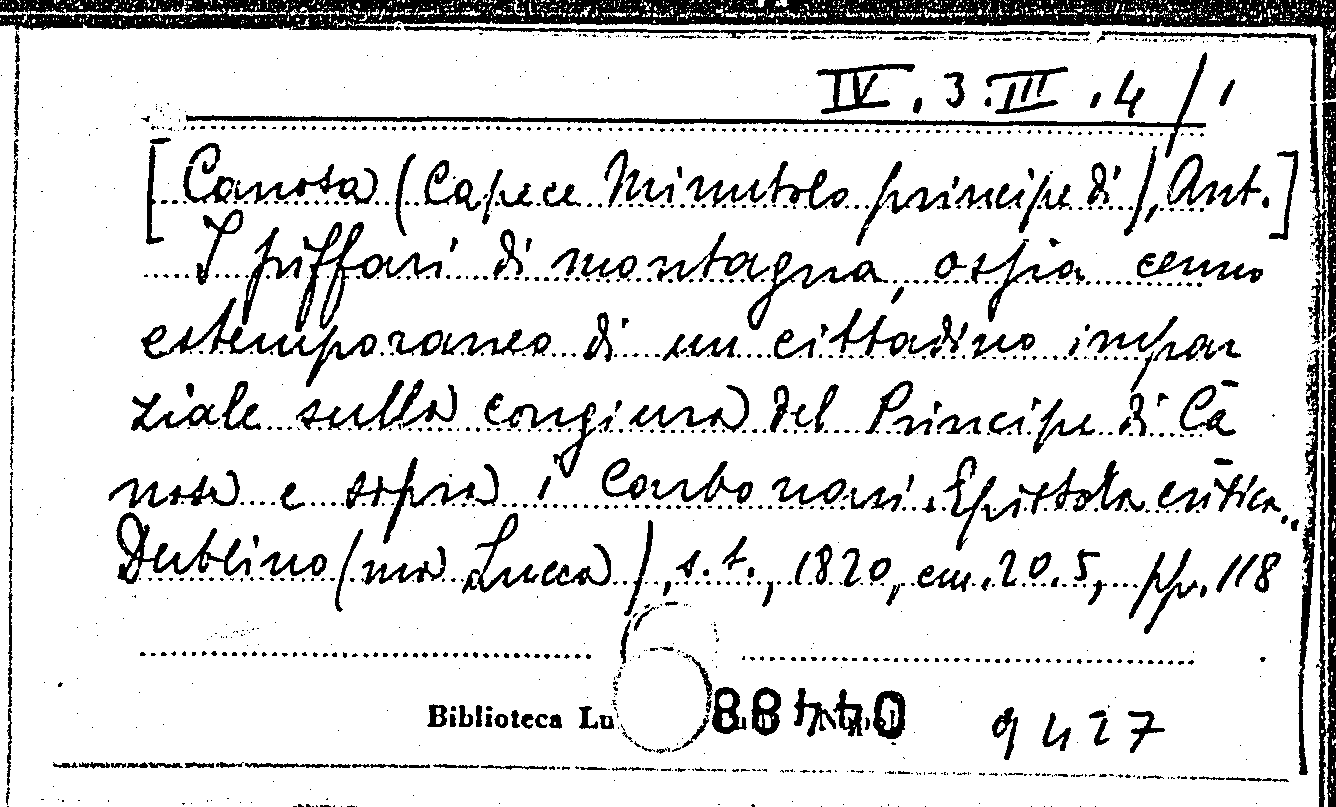 IV.3.III.4/1
[Canosa (Capece Minutolo principe di), Ant.]
I piffari di montagna, ossia cenno
estemporaneo di un cittadino impar
ziale sulla congiura del Principe di Ca
nosa e sopra i Carbonari. Epistola critica..
Dublino (ma Lucca), s.t., 1820, cm. 20.5, pp. 118
Biblioteca Lu
9427